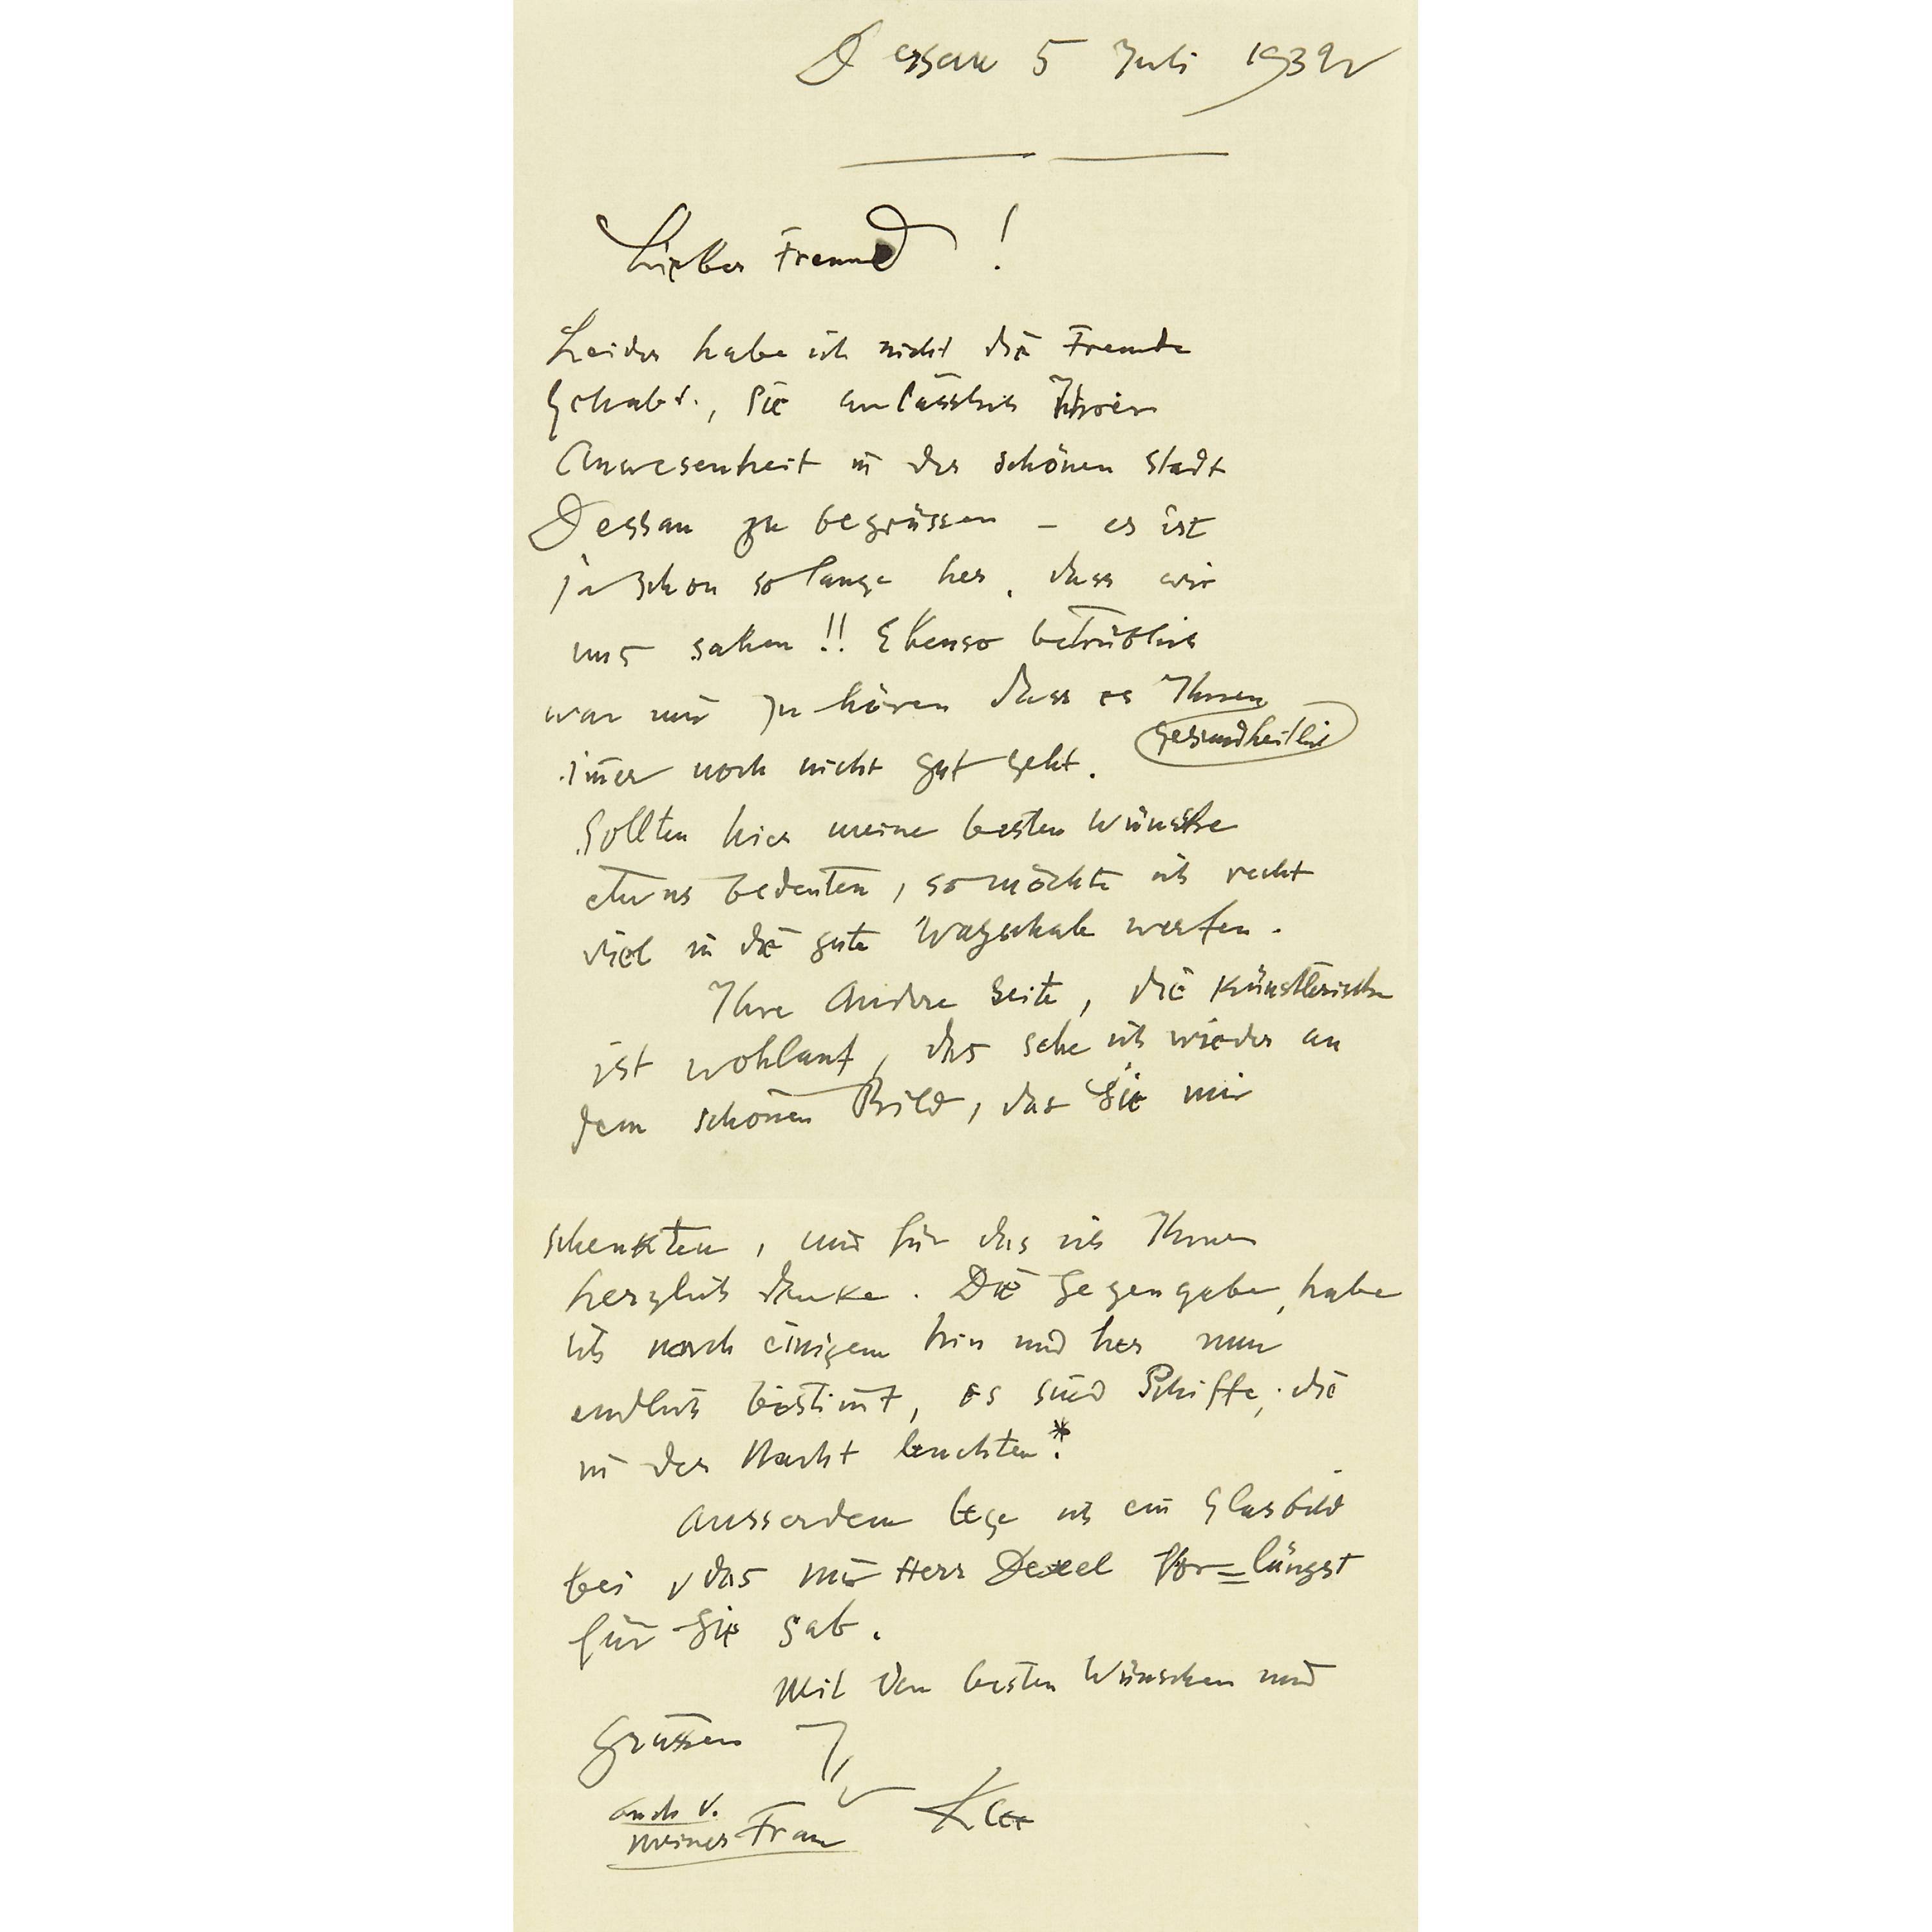 Dessau 5 Juli 1932
Lieber Freund !
Leider habe ich nicht die Freude
gehabt, Sie anlässlich Ihrer
Anwesenheit in der schönen Stadt
Dessau zu begrüssen – es ist
ja schon so lange her, dass wir
uns sahen !! Ebenso betrüblich
war mir zu hören dass es Ihnen
gesundheitlich
im̄er noch nicht gut geht.
Sollten hier meine besten Wünsche
etwas bedeuten, so möchte ich recht
viel in die gute Wagschale werfen.
Ihre andere Seite, die künstlerische
ist wohlauf, das sehe ich wieder an
dem schönen Bild, das Sie mir
schenkten, und für das ich Ihnen
herzlich danke. Die Gegengabe, habe
ich nach einigem hin und her nun
endlich bestim̄t, es sind Schiffe, die
in der Nacht leuchten.*
Ausserdem lege ich ein Glasbild
bei, das mir Herr Dexel vor=längst
für Sie gab.
Mit den besten Wünschen und
Grüssen Ihr
Klee
auch v.
meiner Frau